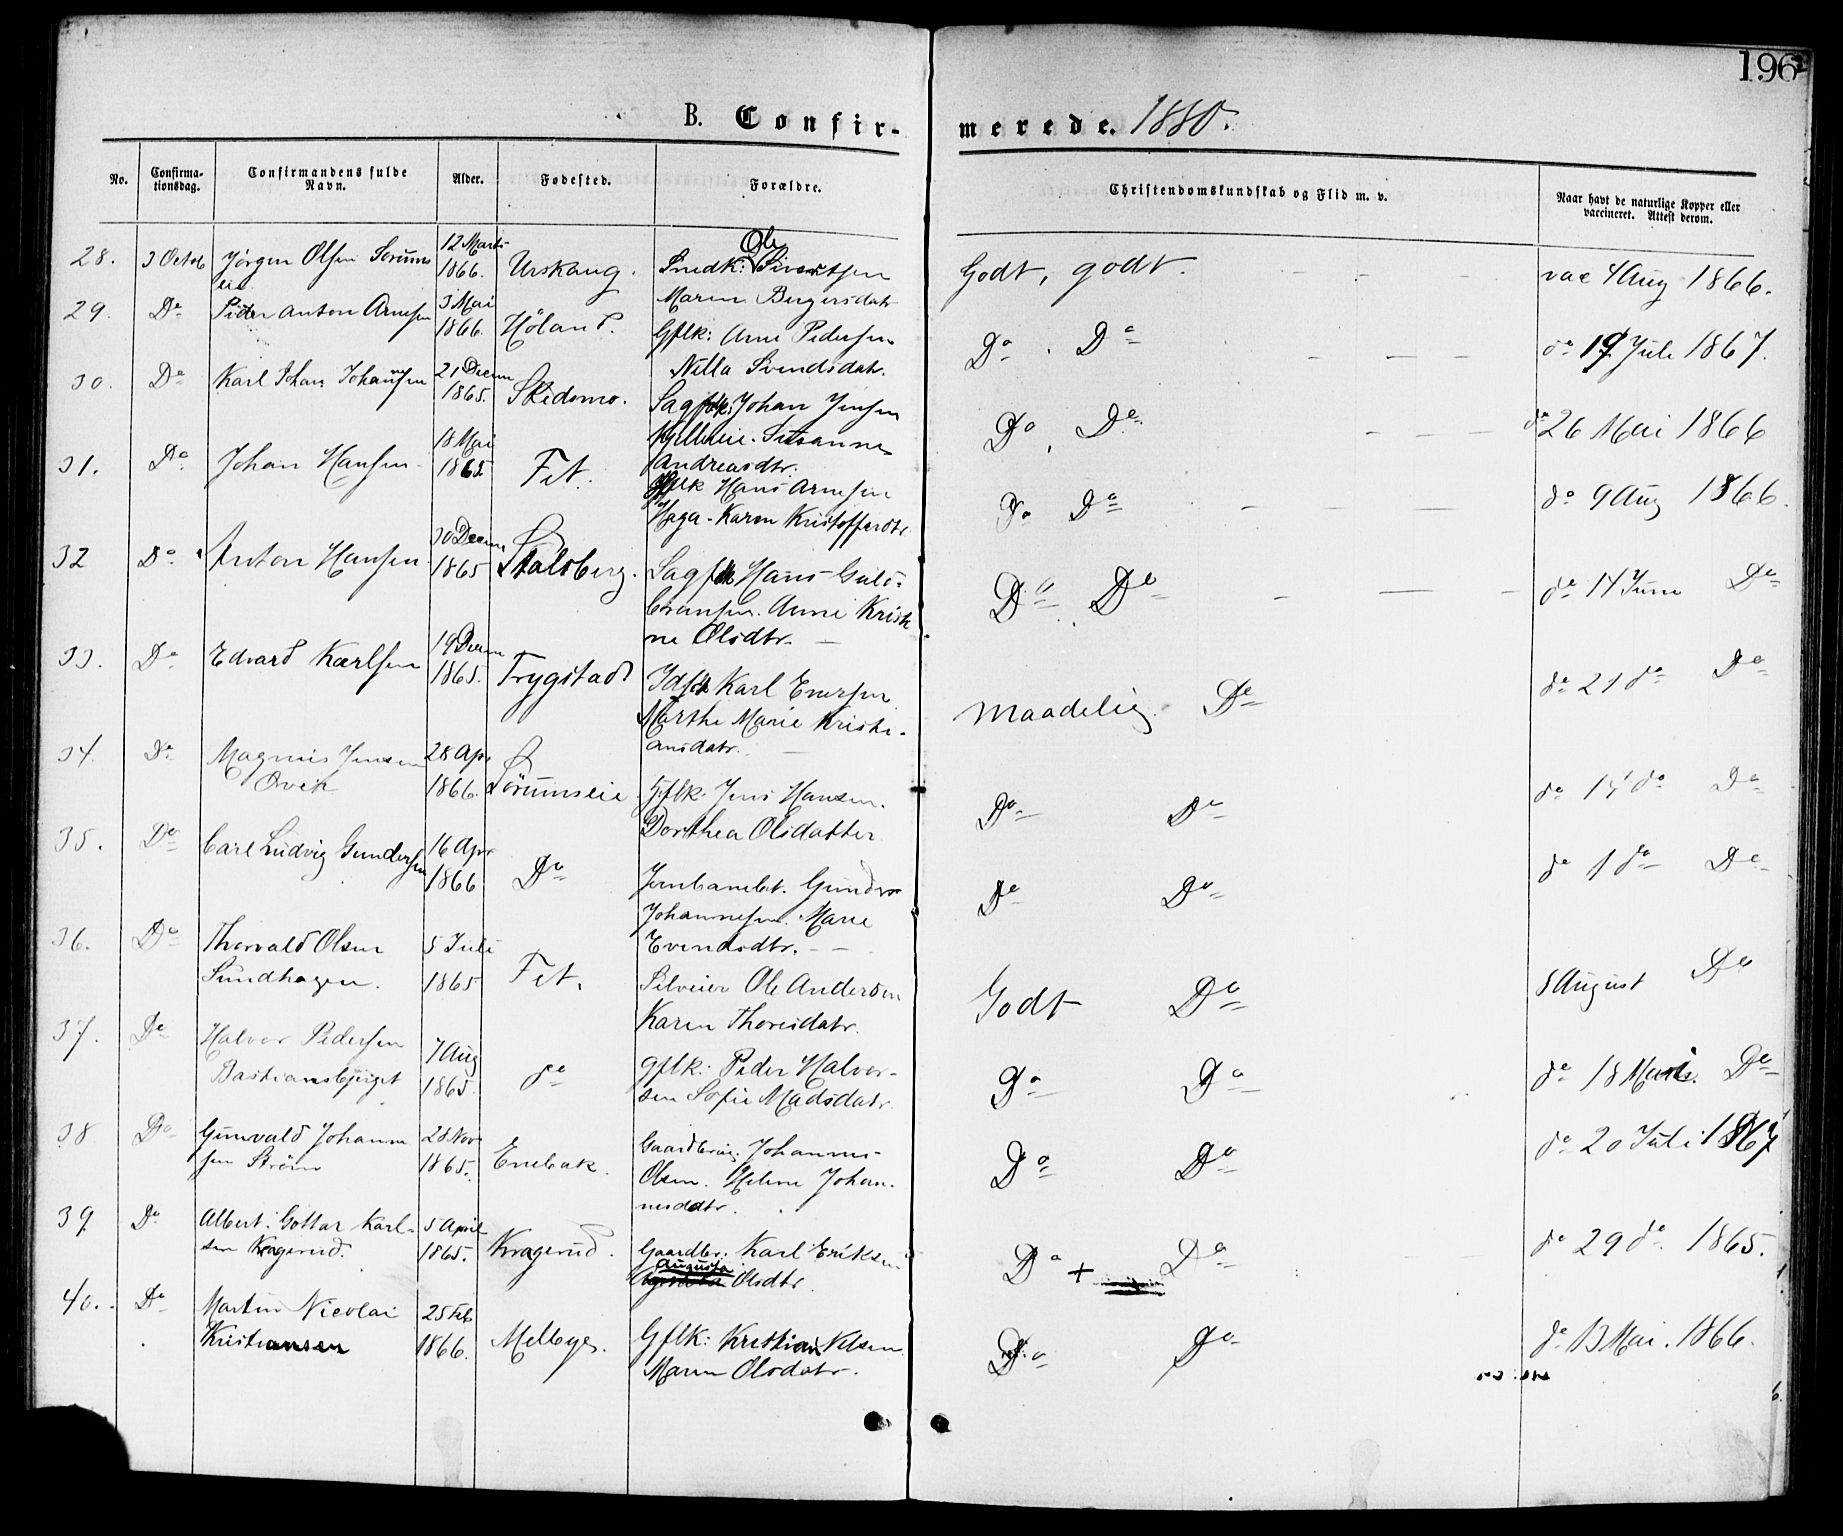 196
B. Confir-
merede. 1880.
No.
Confirma-
tionsdag.
Confirmandens fulde
Navn.
Alder.
Fødested.
Forældre.
Christendomskundskab og Flid m. v.
Naar havt de naturlige Kopper eller
vaccineret. Attest derom.
28. 3 Octob Jørgen Olsen Sørums
eie
12 Marts
1866. Urskaug. Smedk: Ole Sivertsen
Maren Bergersdatr
Godt, godt. vac 4 Aug 1866.
29. Do Peder Anton Arnesen 3 Mai
1866. Høland. Gflk: Arne Pedersen
Nilla Svendsdatr.
Do. Do do 19 Juli 1867.
30. Do Karl Johan Johansen 21 Decem
1865. Skedsmo. Sagflk: Johan Jensen
Susanne
Andreasdtr.
Do, Do do 26 Mai 1866
31. Do Johan Hansen 18 Mai
1865 Fet. Gflk Hans Arnesen
Haga - Karen Kristoffersdtr
Do Do do 9 Aug 1866.
32 Do Anton Hansen 30 Decem
1865 Stalsberg. Sagflk Hans Guld-
bransen. Anne Kristi-
ne Olsdtr.
Do. Do do 14 Juni Do
33. Do Edvard Karlsen 19 Decem
1865. Trygstad Karl Enersen
Marthe Marie Kristi-
ansdatr.
Maadelig. Do do 21 do Do
34. Do Magnus Jensen
28 Apr
1866. Sørumseie Gflk. Jens Hansen.
Dorthea Olsdatter
Do Do do 14 do Do
35. Do Carl Ludvig Gundersen 16 Apr
1866 Do Gunder
Johannesen. Marie
Evendsdtr.
Do Do do 1 do Do
36. Do Thorvald Olsen
Sundhagen.
5 Juli
1865 Fet. Selveier Ole Andersen
Karen Thoresdatr.
Godt Do 8 August Do
37. Do Halvor Pedersen
Bastiansbjerget
7 Aug
1865 do Gflk: Peder Halvor-
sen Sofie Madsdatr.
Do Do do 18 Marts. Do
38 Do Gunvald Johanne
sen Strøm
28 Nov
1865. Enebak. Gaardbrug. Johannes
Olsen. Helene Johan-
nesdatr.
Do Do do 20 Juli 1867
39 Do Albert Gottar Karl-
sen Kragerud.
5 April
1865. Kragerud. Gaardbr: Karl Eriksen
Augusta
Olsdtr
Do + Do do 29 do 1865.
40. Do Martin Nicolai
Kristiansen
25 Feb
1866. Melbye. Gflk: Kristian Nilsen
Maren Olsdatr.
Do Do do 13 Mai. 1866.